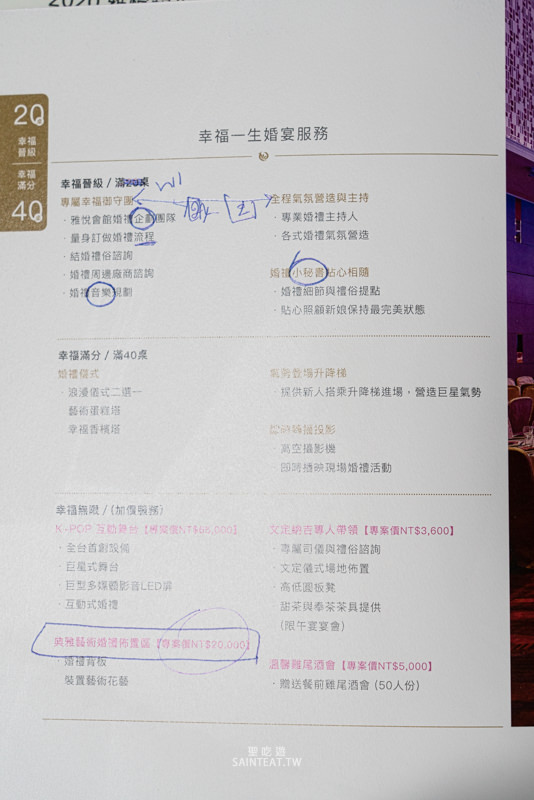 20
幸福
晉級
幸福
滿分
40
幸福一生婚宴服務
幸福晉級 / 滿 桌
專屬幸福御守團
・雅悅會館婚禮企劃團隊
・量身訂做婚禮流程
・結婚禮俗諮詢
・婚禮周邊廠商諮詢
・婚禮音樂規劃
全程氣氛營造與主持
・專業婚禮主持人
・各式婚禮氣氛營造
婚禮小秘書貼心相隨
・婚禮細節與禮俗提點
・貼心照顧新娘保持最完美狀態
幸福滿分 / 滿40桌
婚禮儀式
・浪漫儀式二選一
藝術蛋糕塔
幸福香檳塔
氣勢登場升降梯
・提供新人搭乘升降梯進場，營造巨星氣勢
投影
・高空攝影機
・即時播映現場婚禮活動
幸福 / (加價服務)
K-POP 互動舞台【專案價NT$ ,000】
・全台首創設備
・巨星式舞台
・巨型多媒體影音LED屏
・互動式婚禮
雅藝術婚禮佈置區【專案價NT$20,000】
・婚禮背板
裝置藝術花藝
文定納吉專人帶領【專案價NT$3,600】
・專屬司儀與禮俗諮詢
・文定儀式場地佈置
・高低圓板凳
・甜茶與奉茶茶具提供
(限午宴宴會)
溫馨雞尾酒會【專案價NT$5,000】
・贈送餐前雞尾酒會 (50人份)
聖吃遊
SAINTEAT.TW